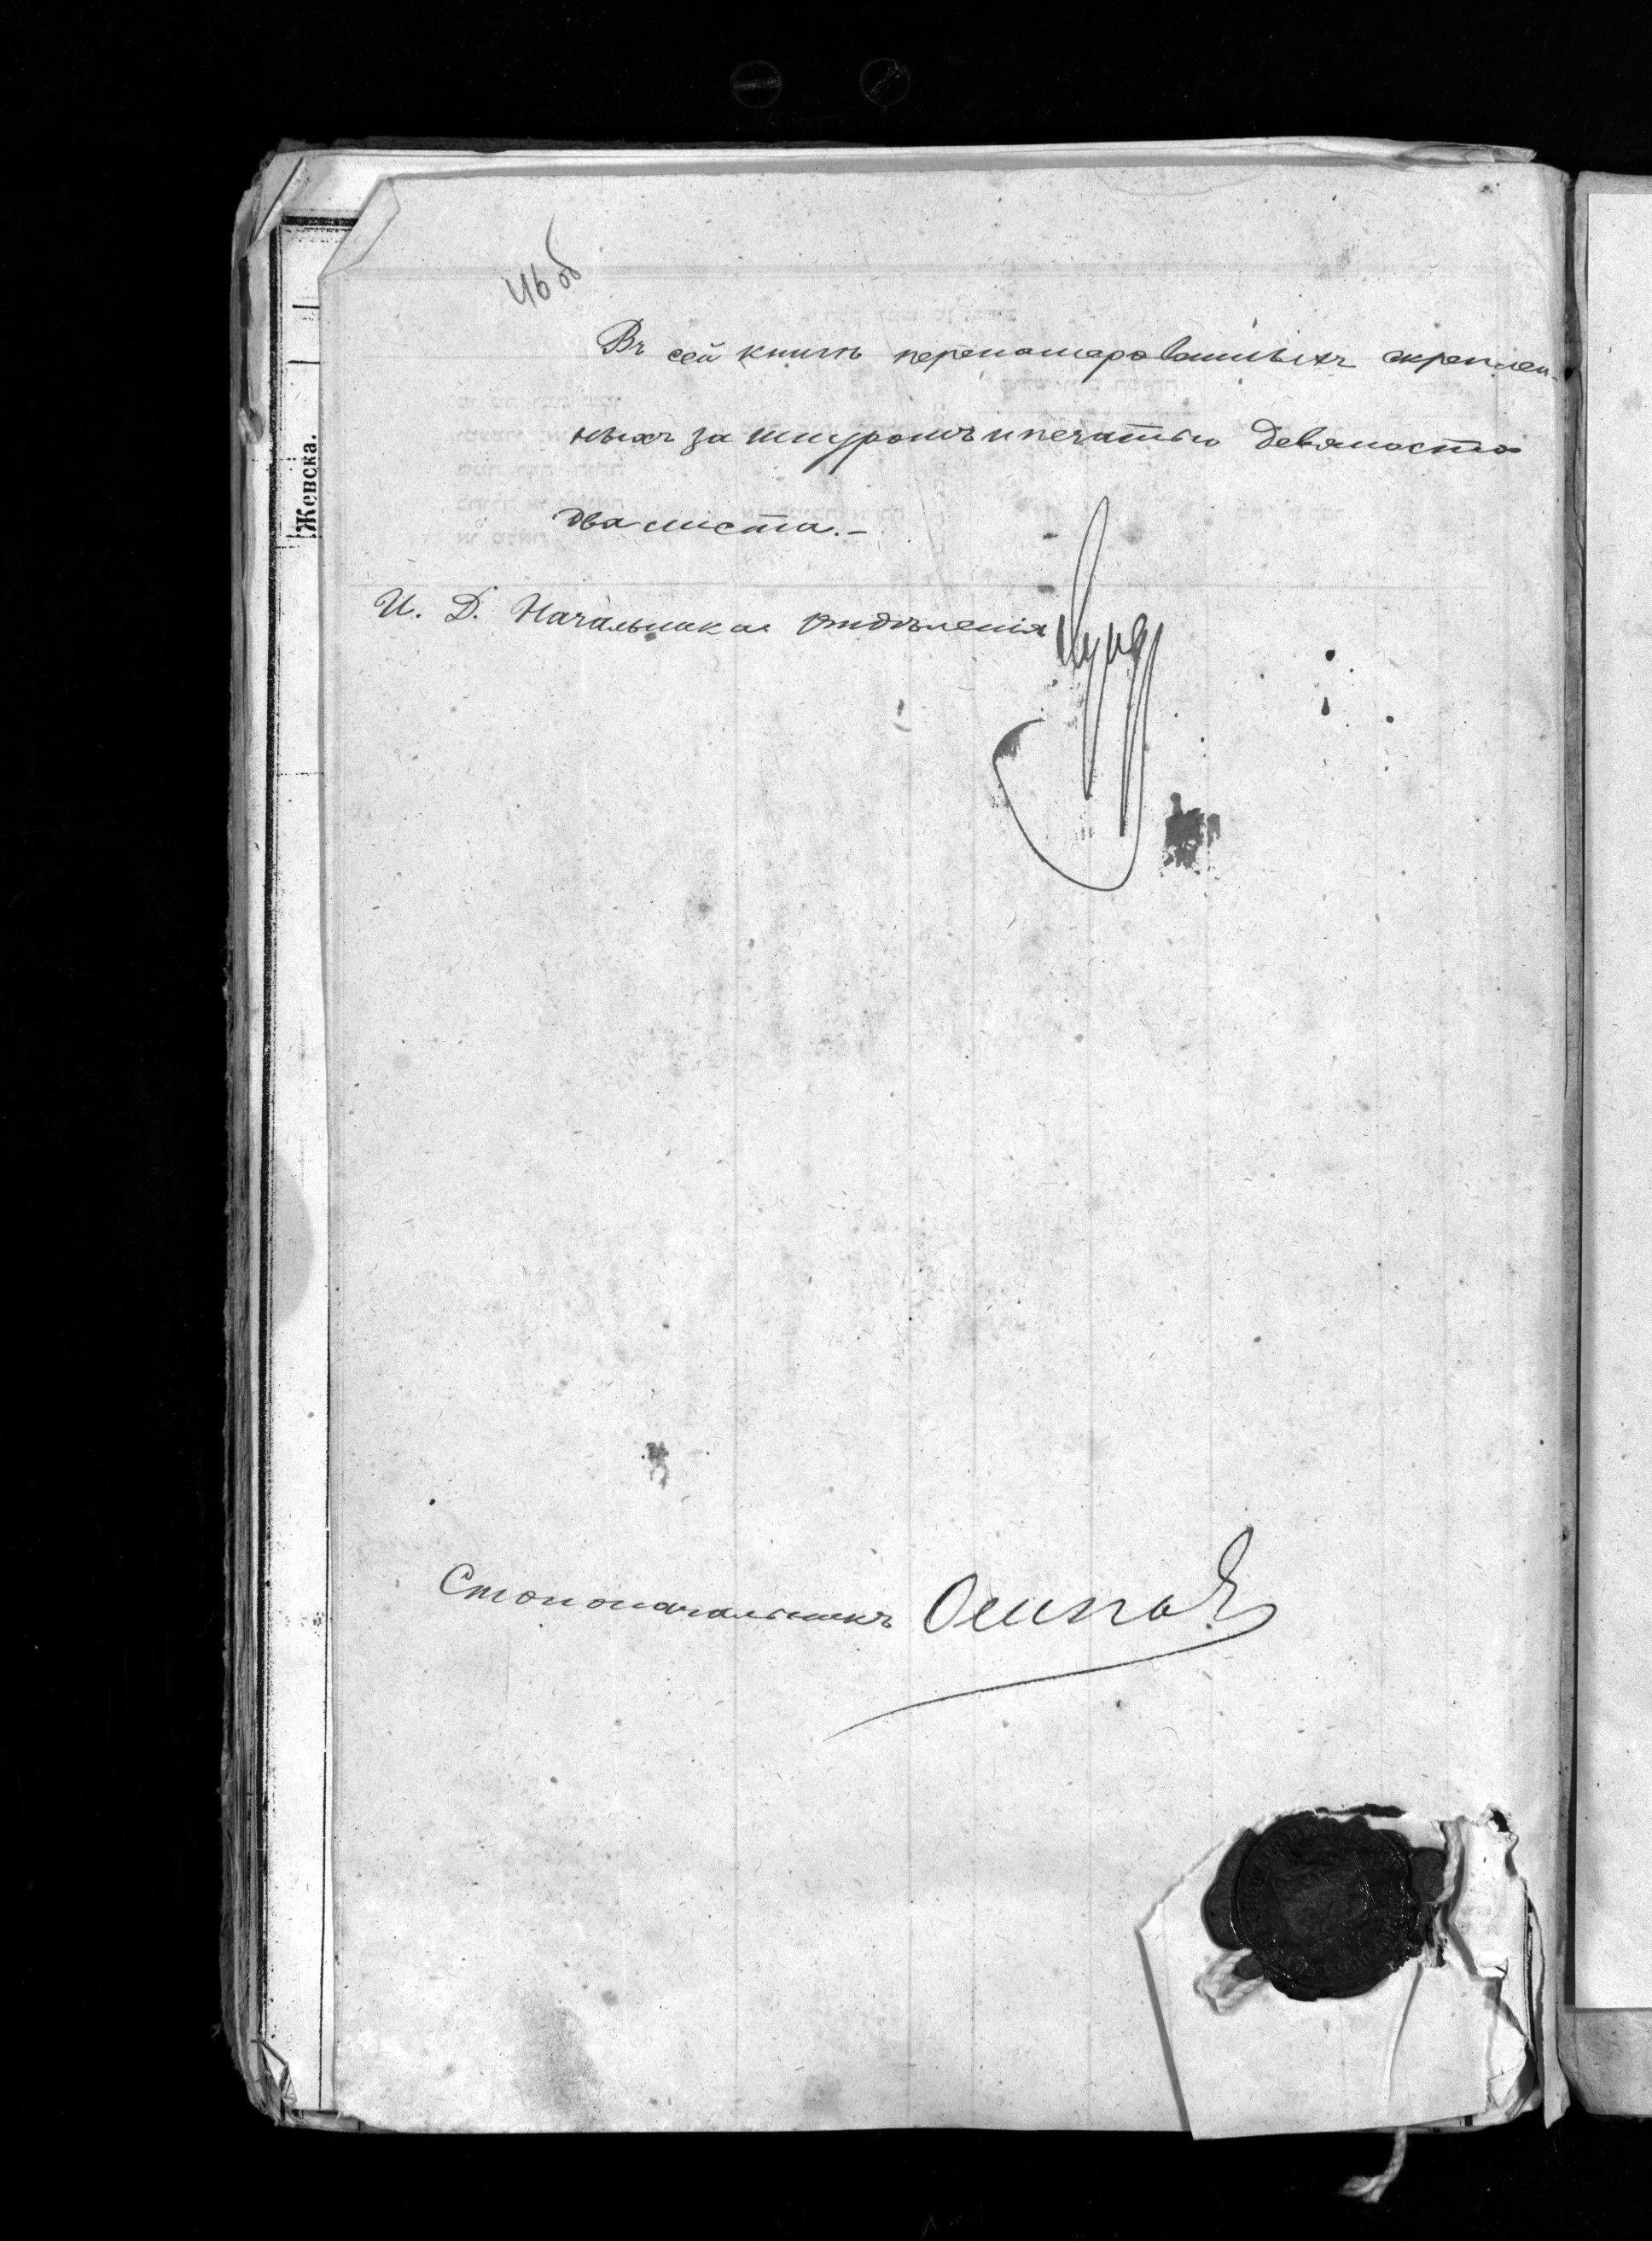 46 об
Въ сей книгѣ перенумерованныхъ скреплен-
ныхъ за шнуромъ и печатью девяносто
два листа.-
И. Д. Начальника Отдѣленія
Столоначальникъ Осипов
Женска.